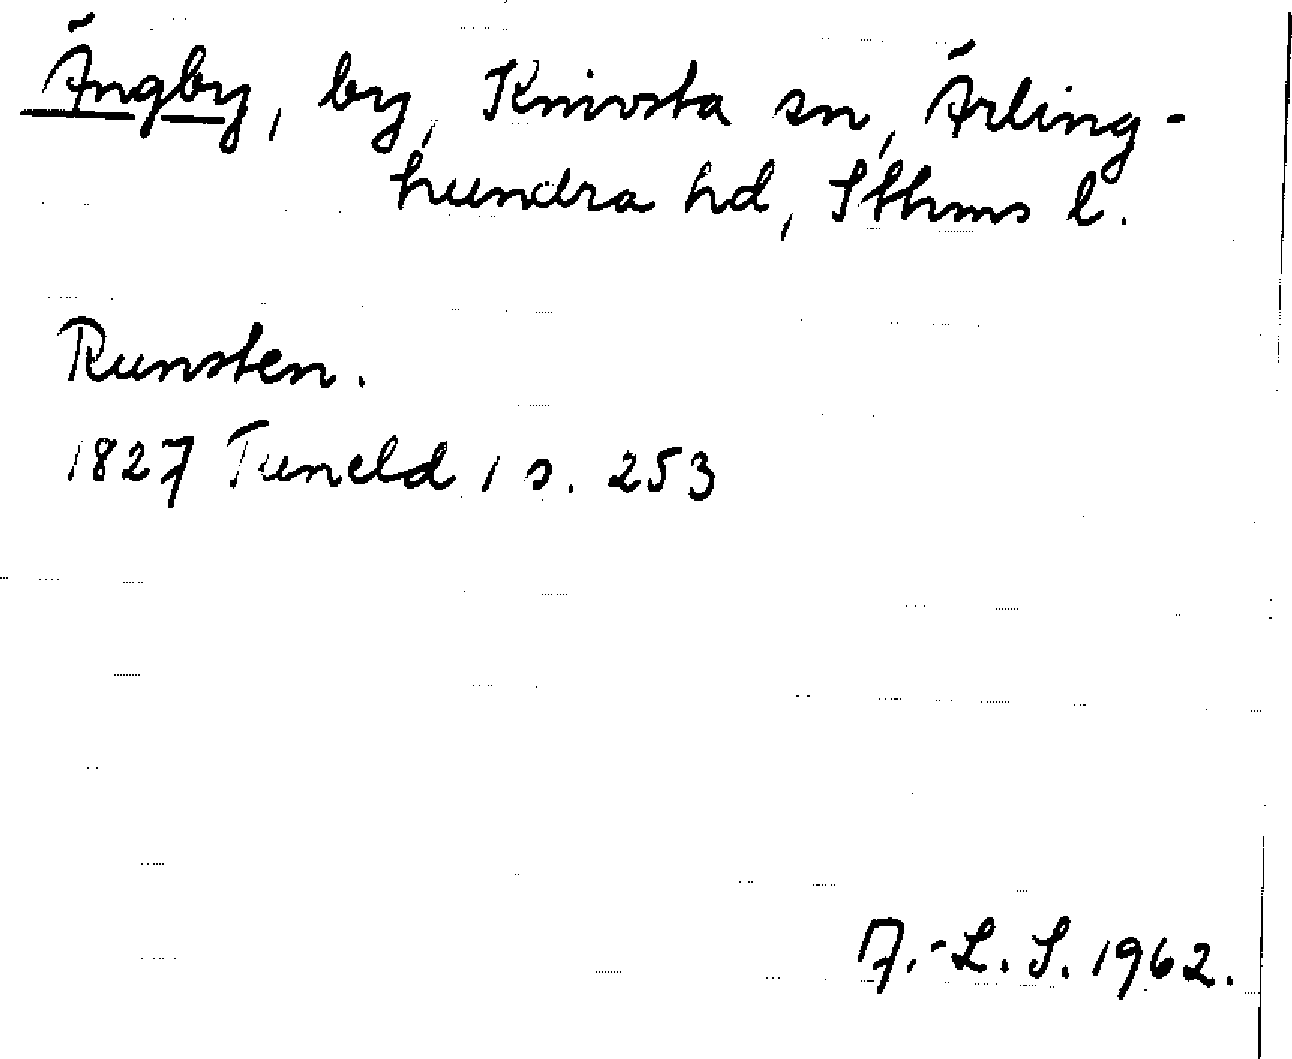 Ängby, by, Knivsta sn, Ärling-
hundra hd, Sthms l.
Runsten.
1827 Tuneld 1 s. 253
A.-L. S. 1962.